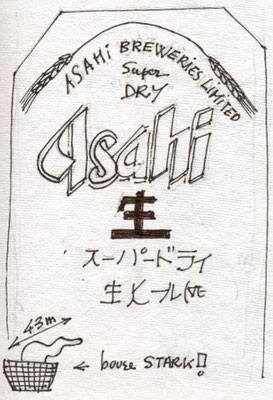 ASAHi BREWERiES LiMiTED
Super
DRY
Asahi
生
スーパードライ
生ビール
43m
← bouse STARK!